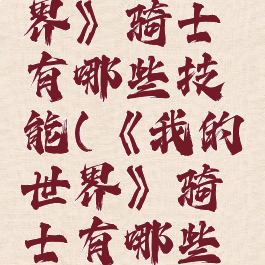 界》骑士
有哪些技
能(《我的
世界》骑
士有哪些